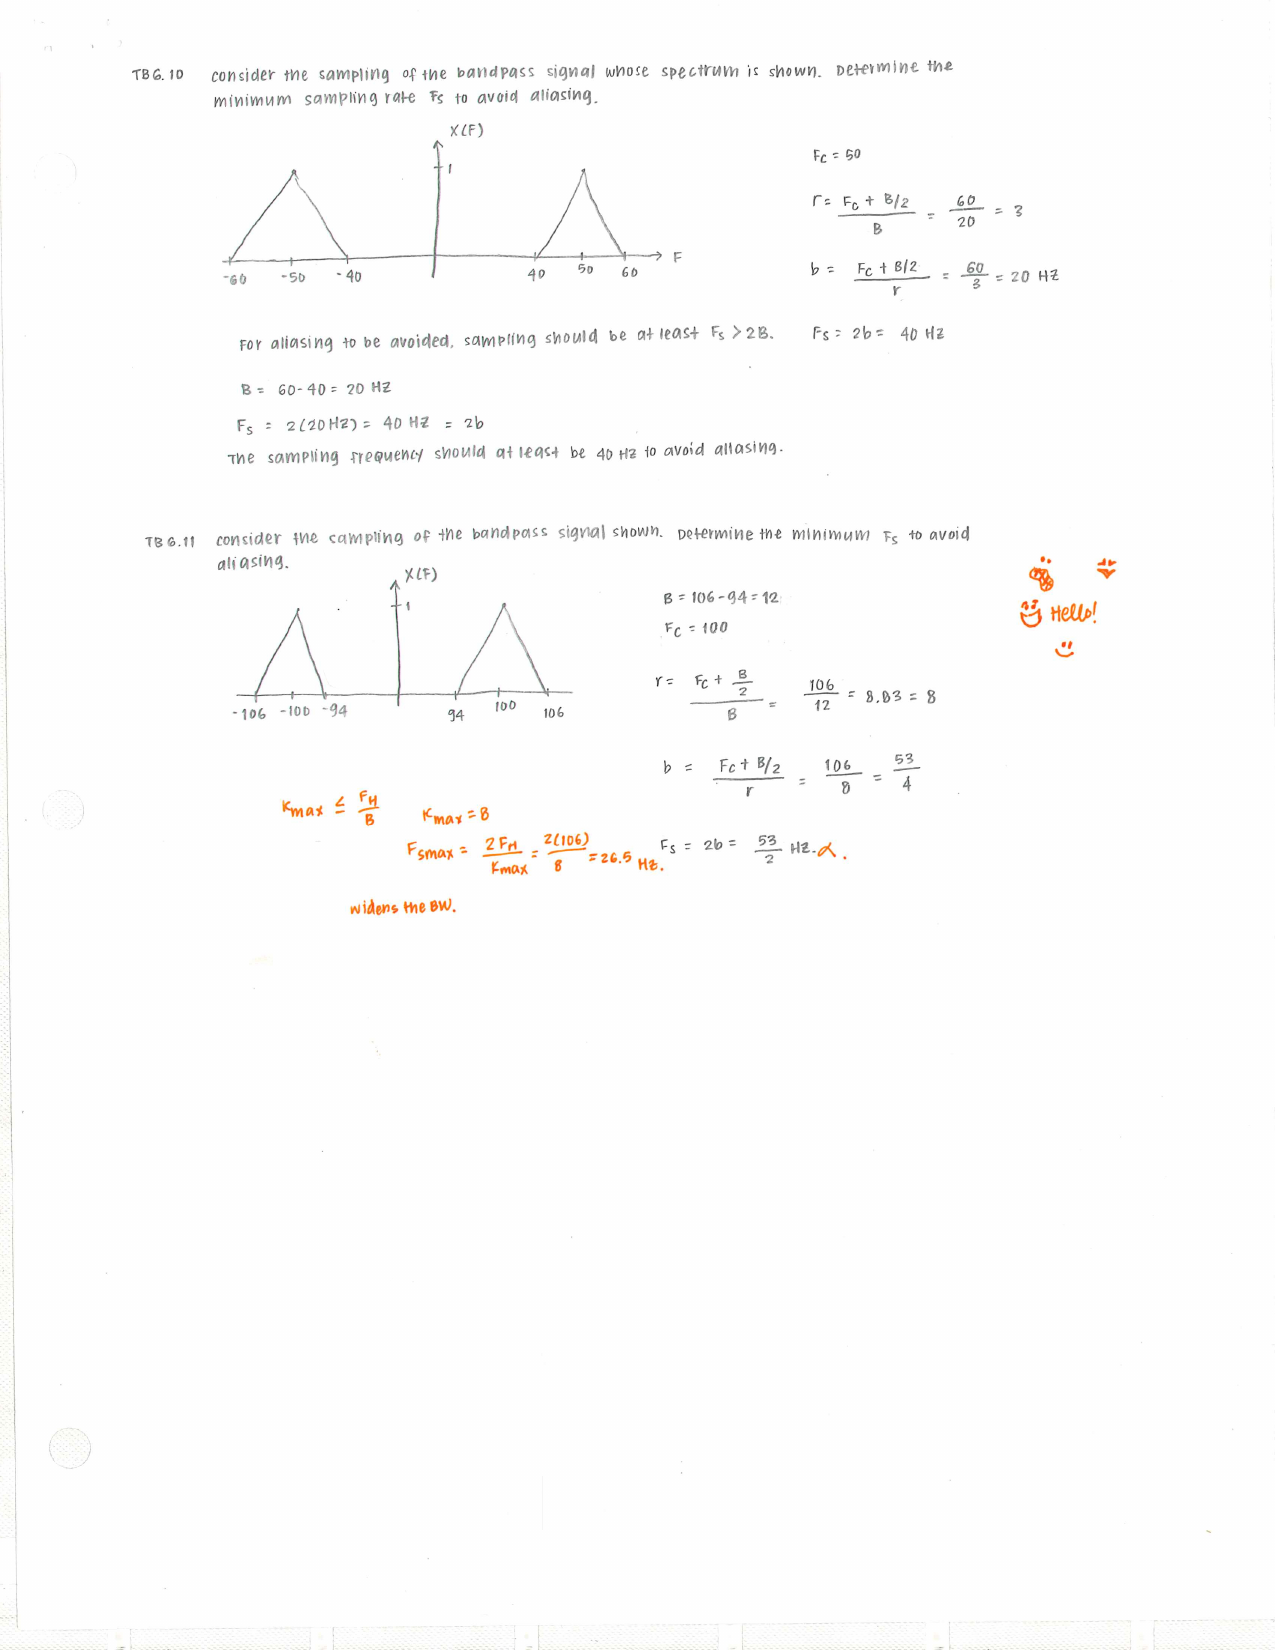 TB 6.10 consider the sampling of the bandpass signal whose spectrum is shown. Determine the
minimum sampling rate Fs to avoid aliasing.
X(F)
1
F
-60 -50 -40 40 50 60
Fc = 50
r = Fc + B/2 / B = 60/20 = 3
b = Fc + B/2 / r = 60/3 = 20 HZ
For aliasing to be avoided, sampling should be at least Fs > 2B.
Fs = 2b = 40 HZ
B = 60-40 = 20 HZ
Fs = 2(20HZ) = 40 HZ = 2b
The sampling frequency should at least be 40 HZ to avoid aliasing.
TB 6.11 consider the sampling of the bandpass signal shown. Determine the minimum Fs to avoid
aliasing.
X(F)
1
-106 -100 -94 94 100 106
B = 106-94 = 12
Fc = 100
Hello!
r = Fc + B/2 / B = 106/12 = 8.83 = 8
b = Fc + B/2 / r = 106/8 = 53/4
Kmax ≤ FH/B Kmax = 8
Fsmax = 2FH/Kmax = 2(106)/8 = 26.5 Hz.
Fs = 2b = 53/2 HZ.α.
widens the BW.